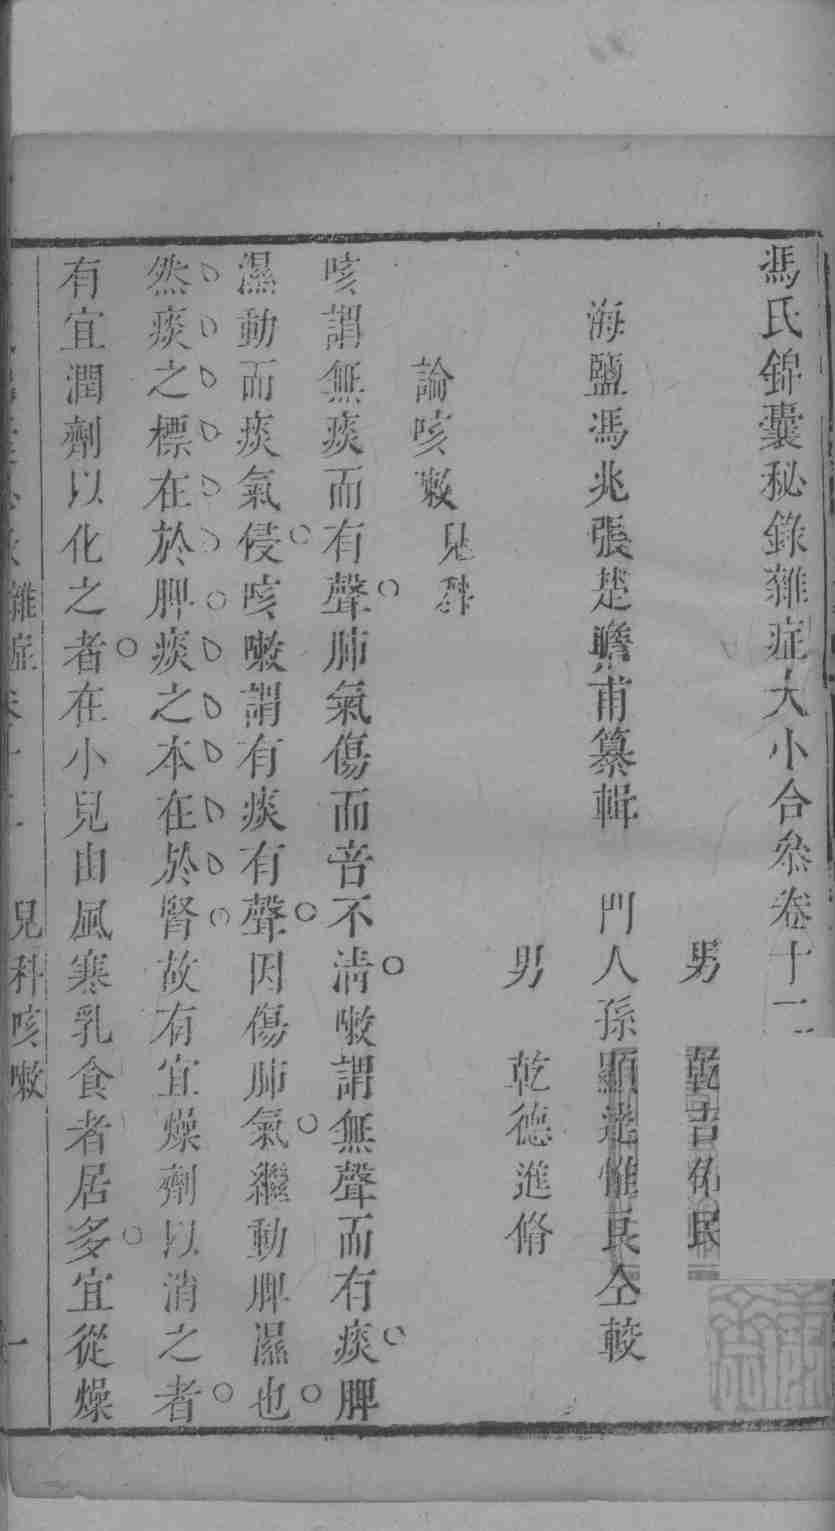 馮氏錦囊秘錄雜症大小合叅卷十二
男　乾吉佑民
海鹽馮兆張楚瞻甫纂輯　門人孫顯達惟良仝較
男　乾德進脩
論咳嗽兒科
咳謂無痰而有聲肺氣傷而音不清嗽謂無聲而有痰脾
濕動而痰氣侵咳嗽謂有痰有聲因傷肺氣繼動脾濕也
然痰之標在於脾痰之本在於腎故有宜燥劑以消之者
有宜潤劑以化之者在小兒由風寒乳食者居多宜從燥
雜症卷十二　兒科咳嗽　一